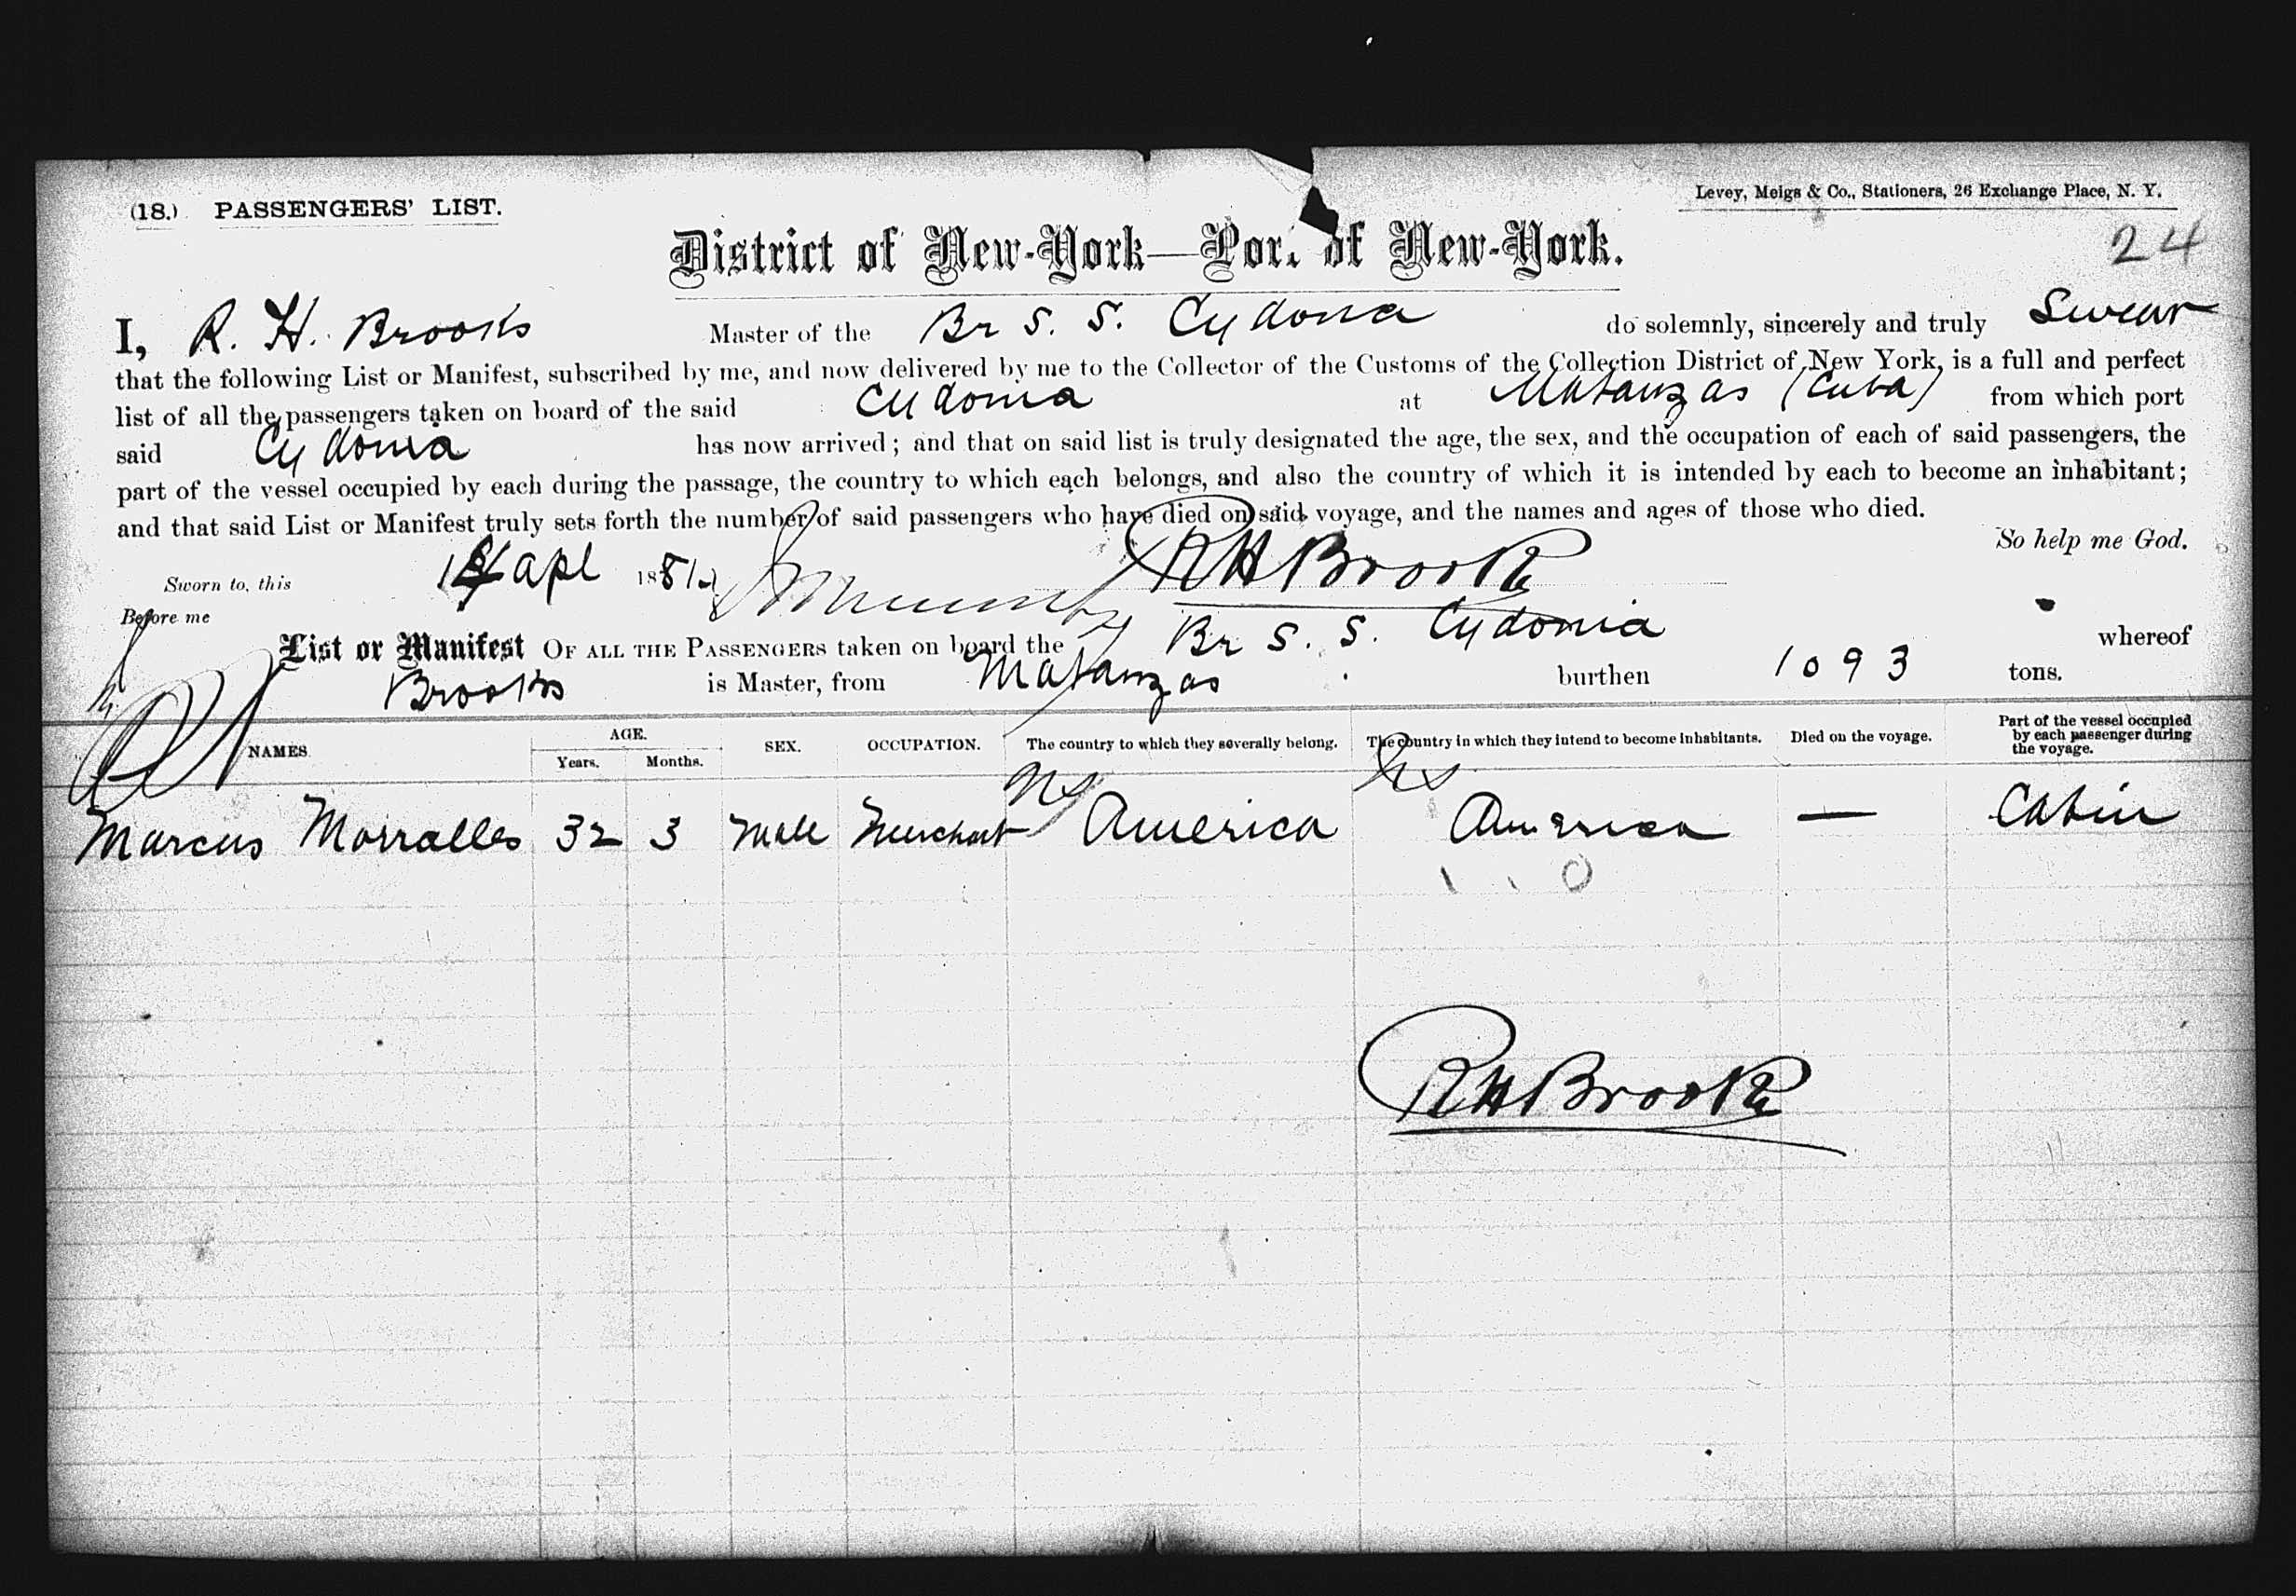 (18.) PASSENGERS' LIST.
Levey, Meigs & Co., Stationers, 26 Exchange Place, N. Y.
24
District of New-York—Port of New-York.
I, R. H. Brooks Master of the Br S. S. Cydonia do solemnly, sincerely and truly Swear
that the following List or Manifest, subscribed by me, and now delivered by me to the Collector of the Customs of the Collection District of New York, is a full and perfect
list of all the passengers taken on board of the said Cydonia at Matanzas (Cuba) from which port
said Cydonia has now arrived; and that on said list is truly designated the age, the sex, and the occupation of each of said passengers, the
part of the vessel occupied by each during the passage, the country to which each belongs, and also the country of which it is intended by each to become an inhabitant;
and that said List or Manifest truly sets forth the number of said passengers who have died on said voyage, and the names and ages of those who died.
So help me God.
Sworn to, this Apl 1881 RH Brooks
Before me
List or Manifest OF ALL THE PASSENGERS taken on board the Br S. S. Cydonia whereof
Brooks is Master, from Matanzas burthen 1093 tons.
NAMES. AGE. Years. Months. SEX. OCCUPATION. The country to which they severally belong. The country in which they intend to become inhabitants. Died on the voyage. Part of the vessel occupied by each passenger during the voyage.
Marcus Morralles 32 3 Male Merchant America America — Cabin
RH Brooks